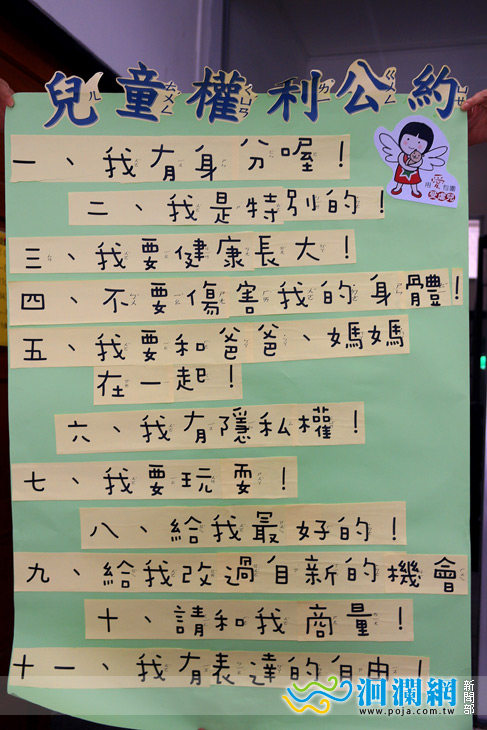 兒童權利公約
用愛包圍
受虐兒
一、我有身分喔！
二、我是特別的！
三、我要健康長大！
四、不要傷害我的身體！
五、我要和爸爸、媽媽
在一起！
六、我有隱私權！
七、我要玩耍！
八、給我最好的！
九、給我改過自新的機會
十、請和我商量！
十一、我有表達的自由！
洄瀾網 新聞部
www.poja.com.tw